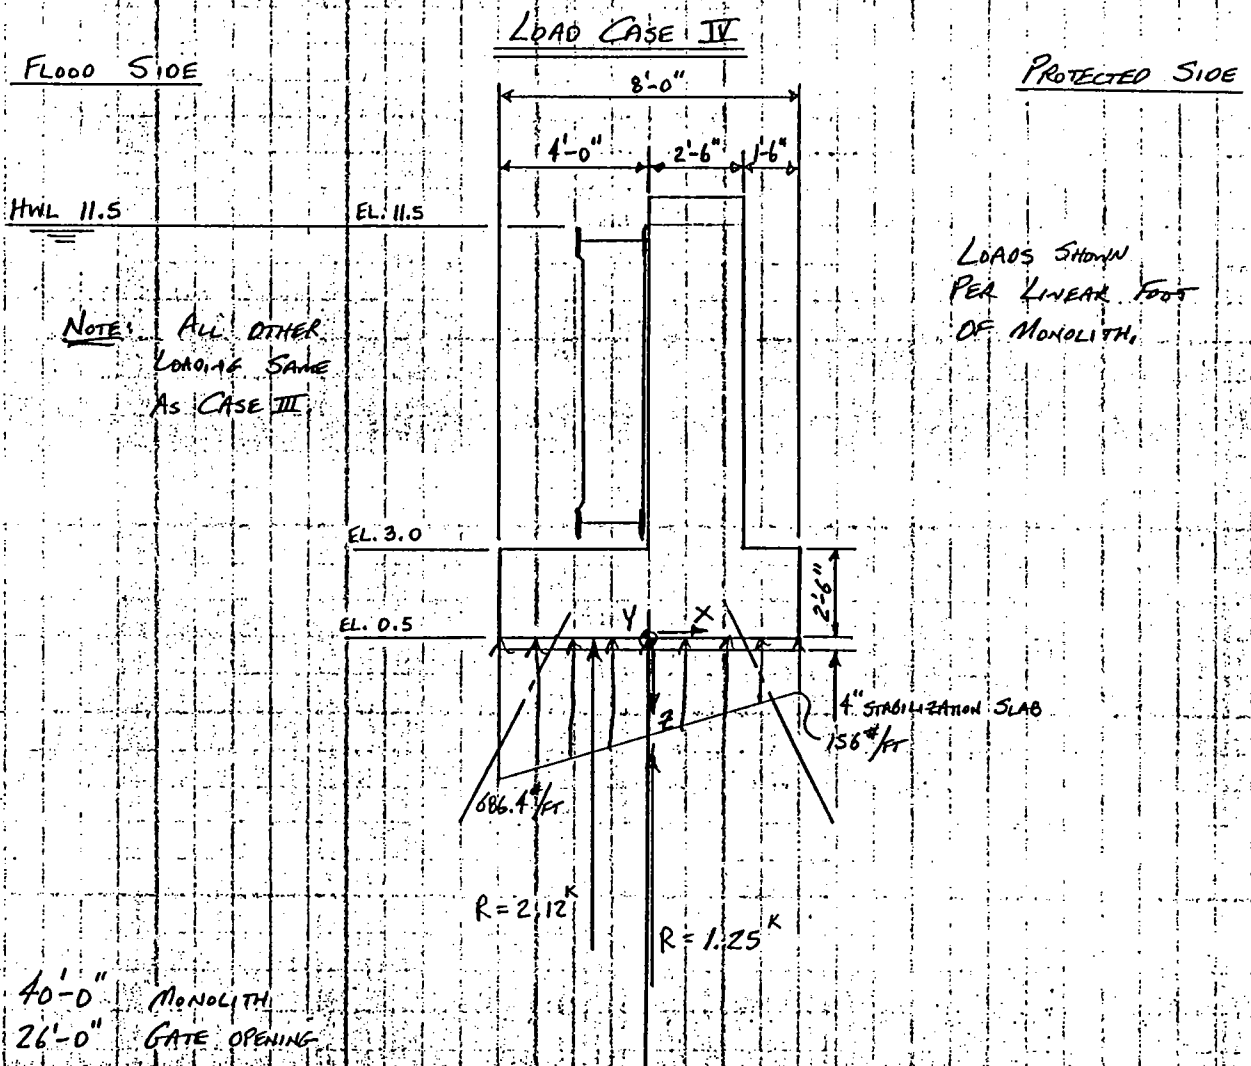 LOAD CASE IV
FLOOD SIDE
PROTECTED SIDE
8'-0"
4'-0"
2'-6"
1'-6"
HWL 11.5
EL. 11.5
LOADS SHOWN
PER LINEAR FOOT
OF MONOLITH.
NOTE: ALL OTHER
LOADING SAME
AS CASE III.
EL. 3.0
2'-6"
Y
X
EL. 0.5
Z
4" STABILIZATION SLAB
156 #/FT
686.4 #/FT
R = 2.12 K
R = 1.25 K
40'-0" MONOLITH
26'-0" GATE OPENING